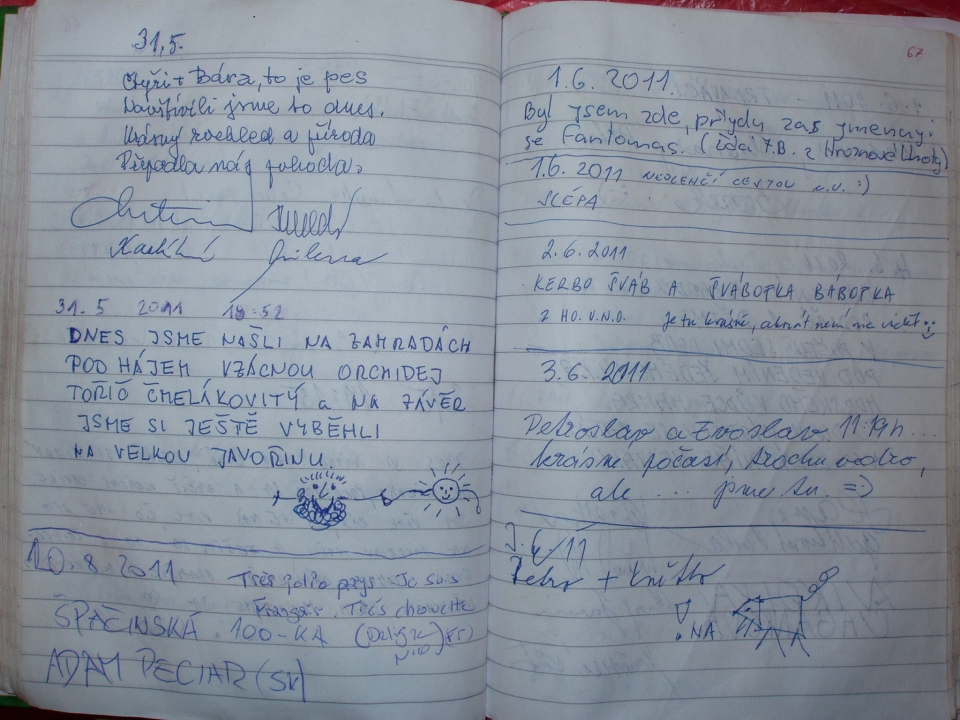 31.5.
Čtyři + Bára, to je pes
Navštívili jsme to dnes.
Krásný rozhled a příroda
Připadla nás pohoda.
31.5 2011 18:52
DNES JSME NAŠLI NA ZAHRADÁCH
POD HÁJEM VZÁCNOU ORCHIDEJ
TOŘIČ ČMELÁKOVITÝ a NA ZÁVĚR
JSME SI JEŠTĚ VYBĚHLI
NA VELKOU JAVOŘINU.
10.8 2011 Très jolie pays. Je suis
Français. Très chouette
ŠPAČINSKÁ 100-KA (FR)
ADAM PECIAR (SK)
67
1.6. 2011
Byl jsem zde, přijdu zas jmenuji
se Fantomas. (Žďár F.B. z Hroznové Lhoty)
1.6. 2011 CESTOU :)
SLÉPA
2.6.2011
KERBO ŠVÁB A ŠVÁBOTKA BÁBOTKA
Z HO.V.N.O. Je tu krásně, akorát není nic vidět
3.6.2011
Petroslav a Evoslav. 11:19h...
krásné počasí, trochu vedro,
ale ... jsme tu. =:)
3.6/11
Petro +
NA